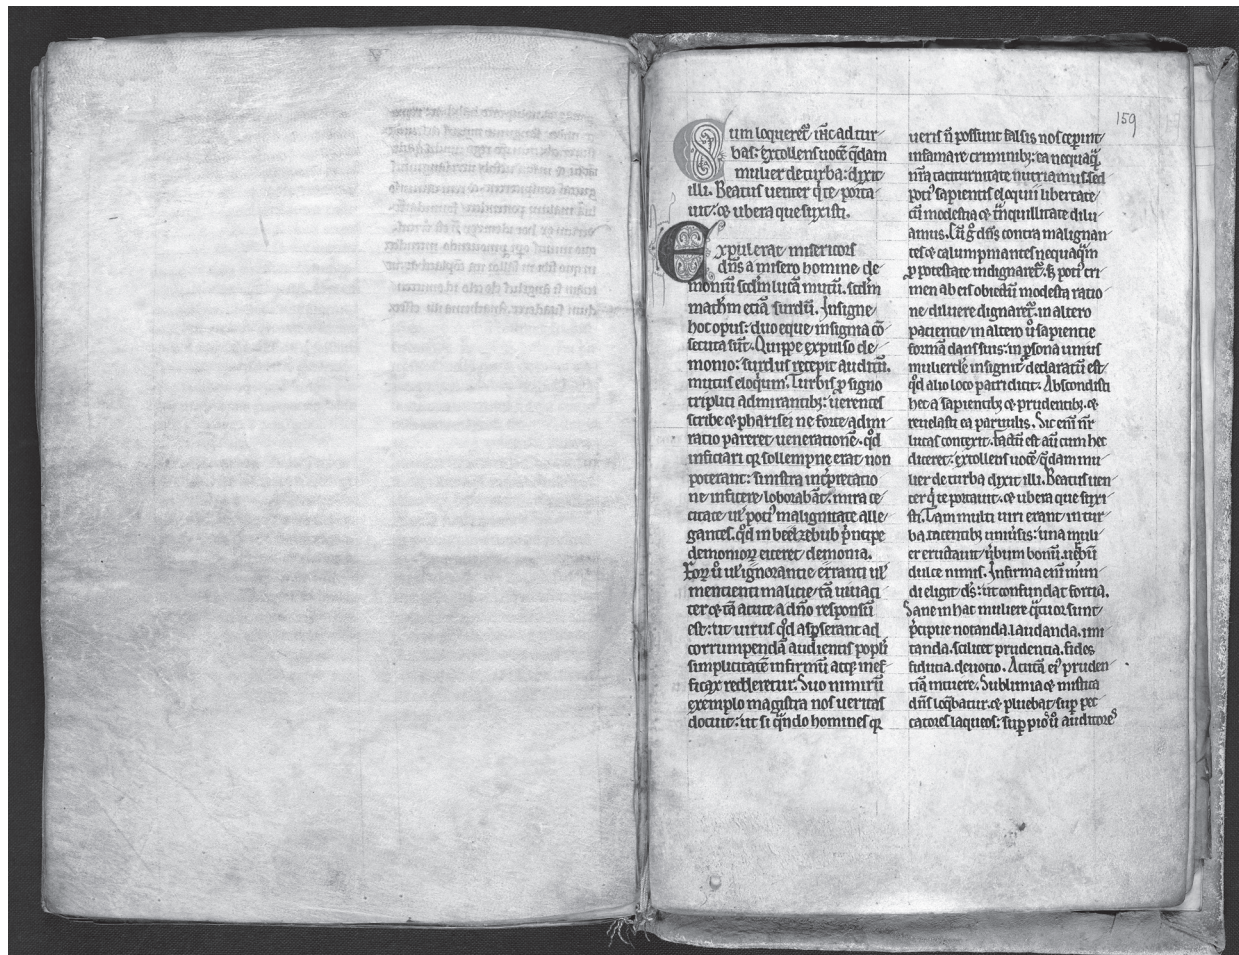 159
Cum loqueret̃ ih̃c ad tur
bas: extollens uocẽ q̃dam
mulier de turba: dixit
illi. Beatus uenter q̇ te porta
uit: ⁊ ubera que suxisti.
Expulerat misericors
dñs a misero homine de
moniũ scd̃m lucã mutũ. scd̃m
math̃m etiã surdũ. Insigne
hoc opus: duo eque insignia cõ
secuta sũt. Quippe expulso de
monio: surdus recepit auditũ.
mutus eloq̇um. Turbis ꝑ signo
triplici admirantibꝫ: uerentes
scribe ⁊ pharisei ne forte admi
ratio pareret uenerationẽ. qd̃
inficiari qꝛ sollempne erat non
poterant: sinistra int̃pretatio
ne inficere laborabãt. mira ce
citate ul̃ poti⁹ malignitate alle
gantes. qd̃ in beelzebub p̃ncipe
demonioꝝ eiceret demonia.
Hoꝝ u̇ ul̃ ignorantie erranti ul̃
mentienti malicie tã uiuaci
ter ⁊ tã acute a dño responsũ
est: ut uirus qd̃ aspserant ad
corrumpendã audientis popl̃i
simplicitatẽ infirmũ atqꝫ inef
ficax redderetur. Suo nimirũ
exemplo magistra nos ueritas
docuit: ut si q̃ndo homines qꝛ
ueris ñ possunt falsis nos ceꝑint
infamare criminibꝫ: ea nequaq̃
nr̃a taciturnitate nutriamus sed
poti⁹ sapientis eloquii libertate
cũ modestia ⁊ t̃nquillitate dilu
amus. Cũ g̊ dñs contra malignan
tes ⁊ calumpniantes nequaq̃m
ꝓ potestate indignaret̃. sꝫ poti⁹ cri
men ab eis obiectũ modesta ratio
ne diluere dignaret̃. in altero
pacientie in altero u̇ sapientie
formã dans suis: in ꝑsona unius
muliercl̃e insignit̃ declaratũ est
qd̃ alio loco patri dicit. Abscondisti
hec a sapientibꝫ ⁊ prudentibꝫ. ⁊
reuelasti ea paruulis. Sic eni̇̃ nr̃
lucas contexit. Factũ est aũt cum hec
diceret: extollens uocẽ q̃dam mu
lier de turba dixit illi. Beatus uen
ter q̇ te portauit. ⁊ ubera que suxi
sti. Tam multi uiri erant in tur
ba. tacentibꝫ uniu̇sis: una muli
er eructauit u̇bum bonũ. uerbũ
dulce nimis. Infirma eni̇̃ mun
di eligit d̃s: ut confundat fortia.
Sane in hac muliere q̃tuor sunt
p̃cipue notanda. laudanda. imi
tanda. scilicet prudentia. fides
fiducia. deuotio. Acutã ei⁹ pruden
tiã intuere. Sublimia ⁊ mistica
dñs loq̃batur. ⁊ pluebat suꝑ pec
catores laqueos: suꝑ pios u̇ auditores